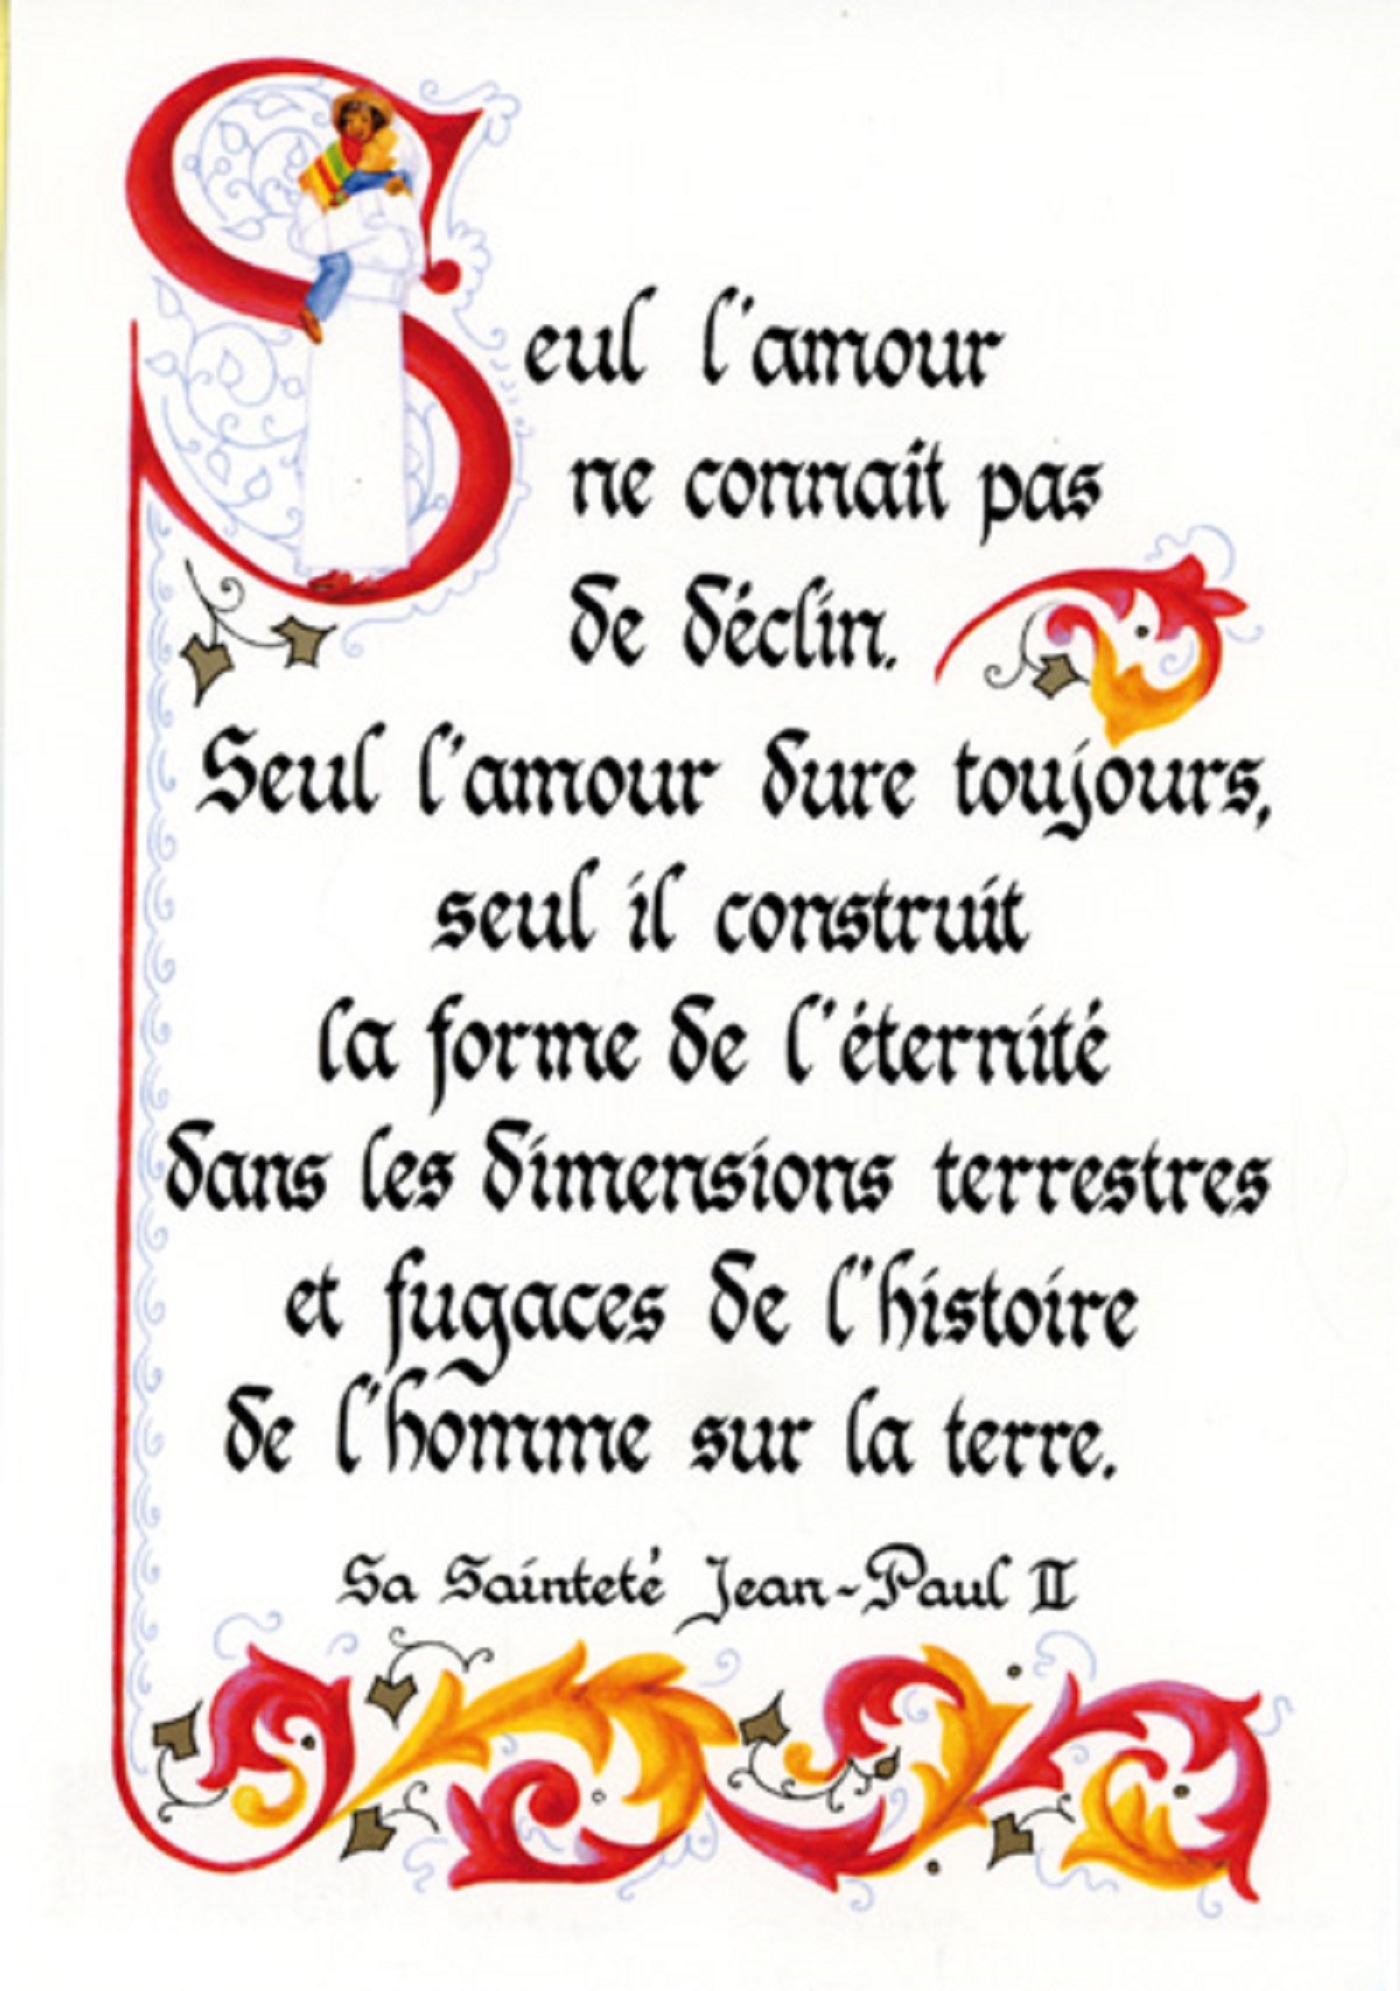 Seul l'amour
ne connait pas
de déclin.
Seul l'amour dure toujours,
seul il construit
la forme de l'éternité
dans les dimensions terrestres
et fugaces de l'histoire
de l'homme sur la terre.
Sa Sainteté Jean-Paul II